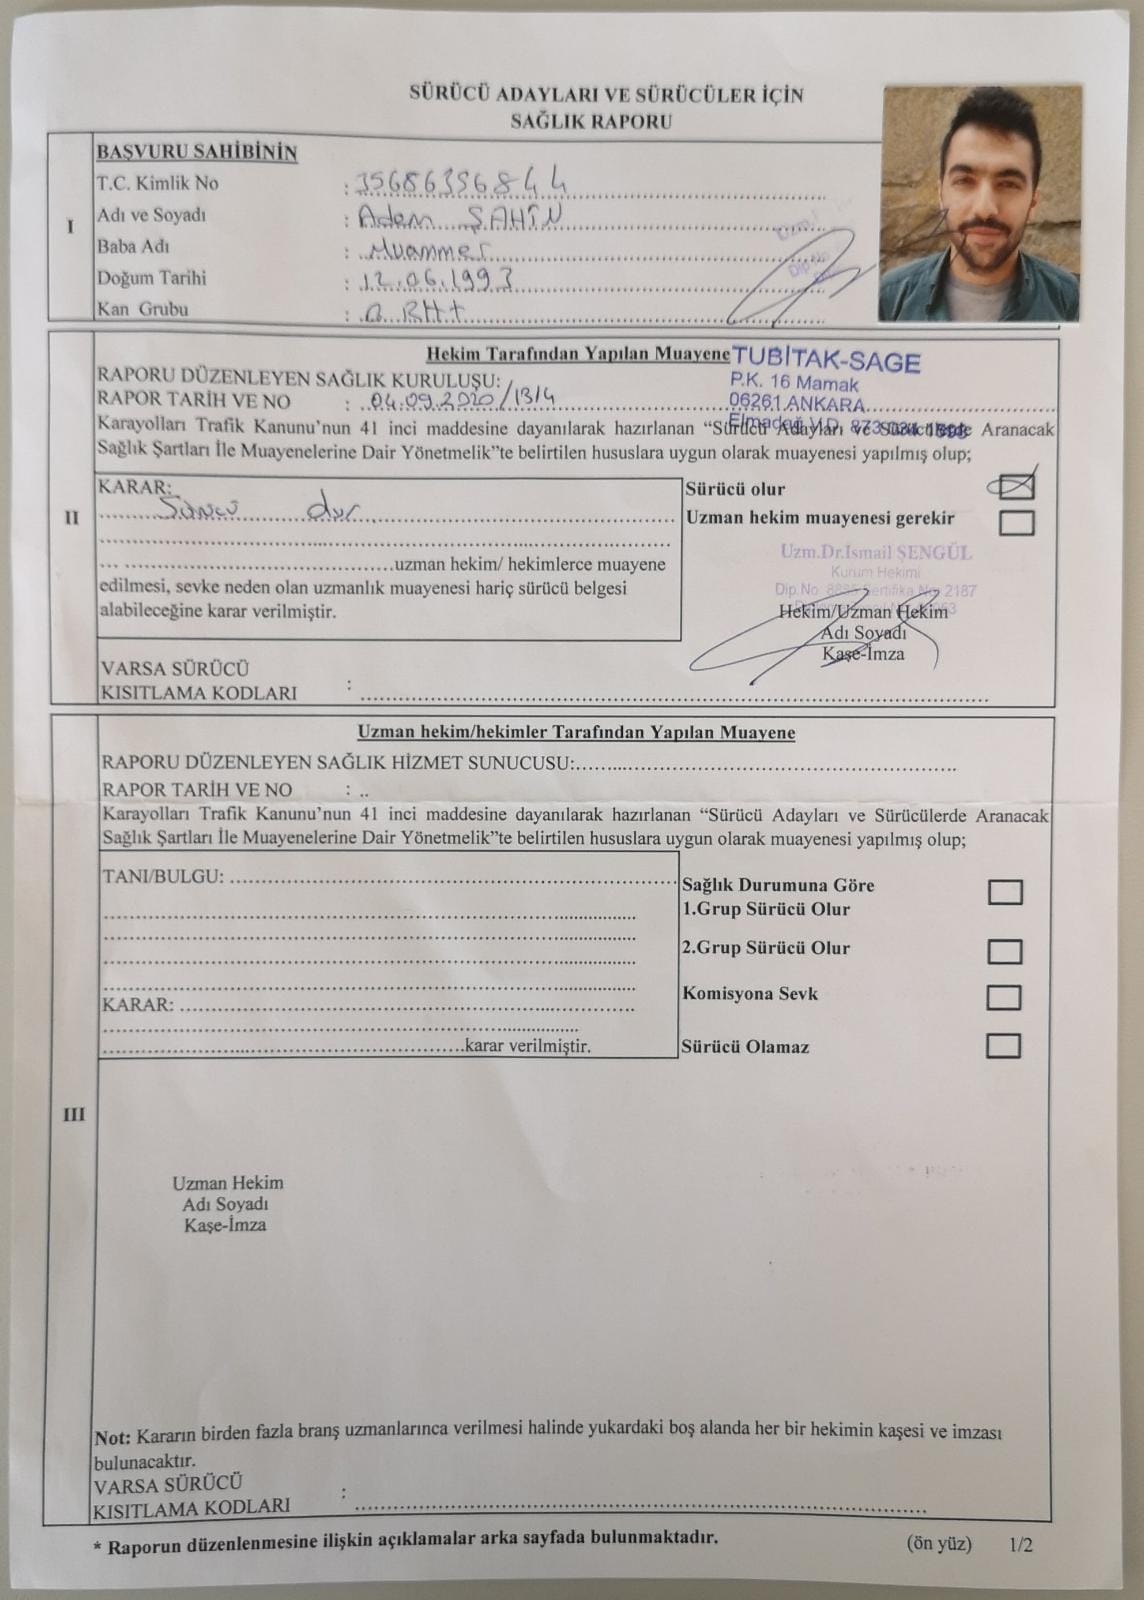 SÜRÜCÜ ADAYLARI VE SÜRÜCÜLER İÇİN
SAĞLIK RAPORU
I
BAŞVURU SAHİBİNİN
T.C. Kimlik No : 35686356844
Adı ve Soyadı : Adem ŞAHİN
Baba Adı : Muammer
Doğum Tarihi : 12.06.1993
Kan Grubu : RH+
Dip.No
II
Hekim Tarafından Yapılan Muayene
TUBİTAK-SAGE
P.K. 16 Mamak
06261 ANKARA
Elmadağ V.D. 873
RAPORU DÜZENLEYEN SAĞLIK KURULUŞU:
RAPOR TARİH VE NO : 04.09.2020/1314
Karayolları Trafik Kanunu'nun 41 inci maddesine dayanılarak hazırlanan “Sürücü Adayları ve Sürücülerde Aranacak
Sağlık Şartları İle Muayenelerine Dair Yönetmelik”te belirtilen hususlara uygun olarak muayenesi yapılmış olup;
KARAR:
Sürücü olur
Uzman hekim muayenesi gerekir
uzman hekim/ hekimlerce muayene
edilmesi, sevke neden olan uzmanlık muayenesi hariç sürücü belgesi
alabileceğine karar verilmiştir.
Uzm.Dr.İsmail ŞENGÜL
Kurum Hekimi
Dip.No Sertifika No: 2187
Hekim/Uzman Hekim
Adı Soyadı
Kaşe-İmza
VARSA SÜRÜCÜ
KISITLAMA KODLARI :
III
Uzman hekim/hekimler Tarafından Yapılan Muayene
RAPORU DÜZENLEYEN SAĞLIK HİZMET SUNUCUSU:
RAPOR TARİH VE NO : ..
Karayolları Trafik Kanunu'nun 41 inci maddesine dayanılarak hazırlanan “Sürücü Adayları ve Sürücülerde Aranacak
Sağlık Şartları İle Muayenelerine Dair Yönetmelik”te belirtilen hususlara uygun olarak muayenesi yapılmış olup;
TANI/BULGU:
KARAR:
karar verilmiştir.
Sağlık Durumuna Göre
1.Grup Sürücü Olur
2.Grup Sürücü Olur
Komisyona Sevk
Sürücü Olamaz
Uzman Hekim
Adı Soyadı
Kaşe-İmza
Not: Kararın birden fazla branş uzmanlarınca verilmesi halinde yukardaki boş alanda her bir hekimin kaşesi ve imzası
bulunacaktır.
VARSA SÜRÜCÜ
KISITLAMA KODLARI :
* Raporun düzenlenmesine ilişkin açıklamalar arka sayfada bulunmaktadır.
(ön yüz) 1/2